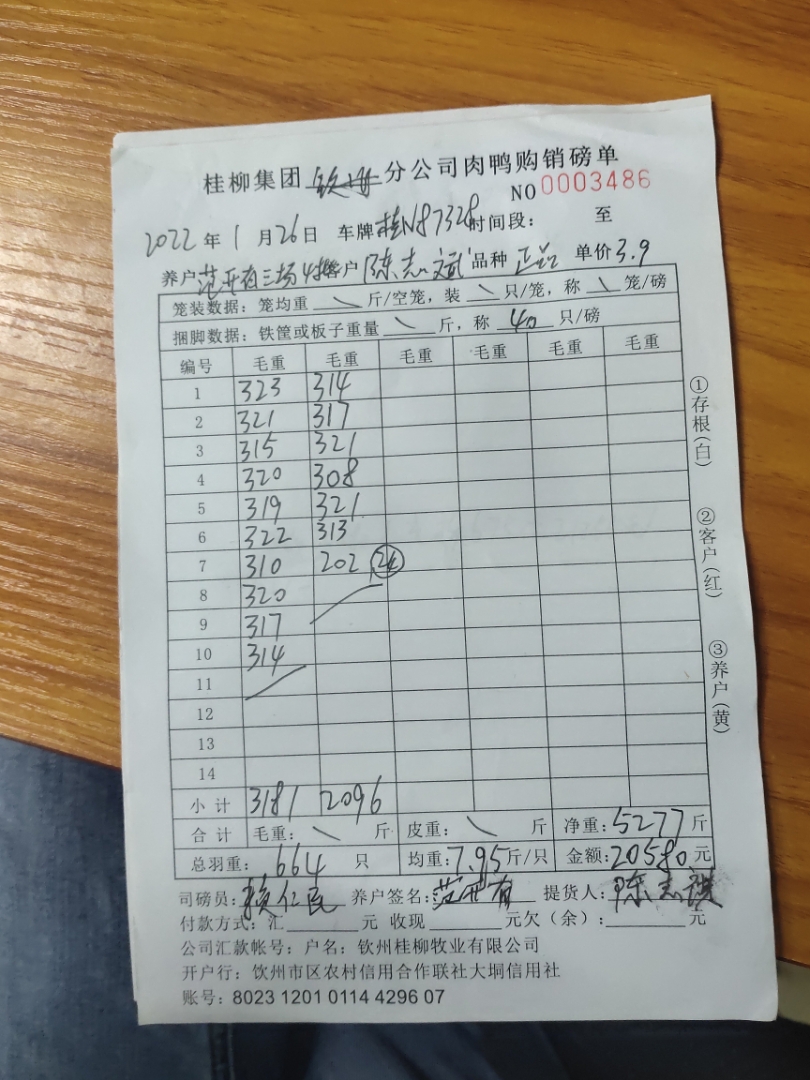 桂柳集团 钦州 分公司肉鸭购销磅单
NO 0003486
2022 年 1 月 26 日 车牌 桂N87328 时间段： 至
养户 范开有三场4批 客户 陈志斌 品种 正品 单价 3.9
笼装数据：笼均重 \ 斤/空笼，装 \ 只/笼，称 \ 笼/磅
捆脚数据：铁筐或板子重量 \ 斤，称 40 只/磅
编号 毛重 毛重 毛重 毛重 毛重 毛重
1 323 314
2 321 317
3 315 321
4 320 308
5 319 321
6 322 313
7 310 202 24
8 320
9 317
10 314
11
12
13
14
小计 3181 2096
合计 毛重： \ 斤 皮重： \ 斤 净重：5277 斤
总羽重： 664 只 均重：7.95 斤/只 金额：20580 元
司磅员：赖仁民 养户签名：范开有 提货人：陈志
付款方式：汇 元 收现 元欠（余）： 元
公司汇款帐号：户名：钦州桂柳牧业有限公司
开户行：钦州市区农村信用合作联社大垌信用社
账号：8023 1201 0114 4296 07
①存根（白）
②客户（红）
③养户（黄）